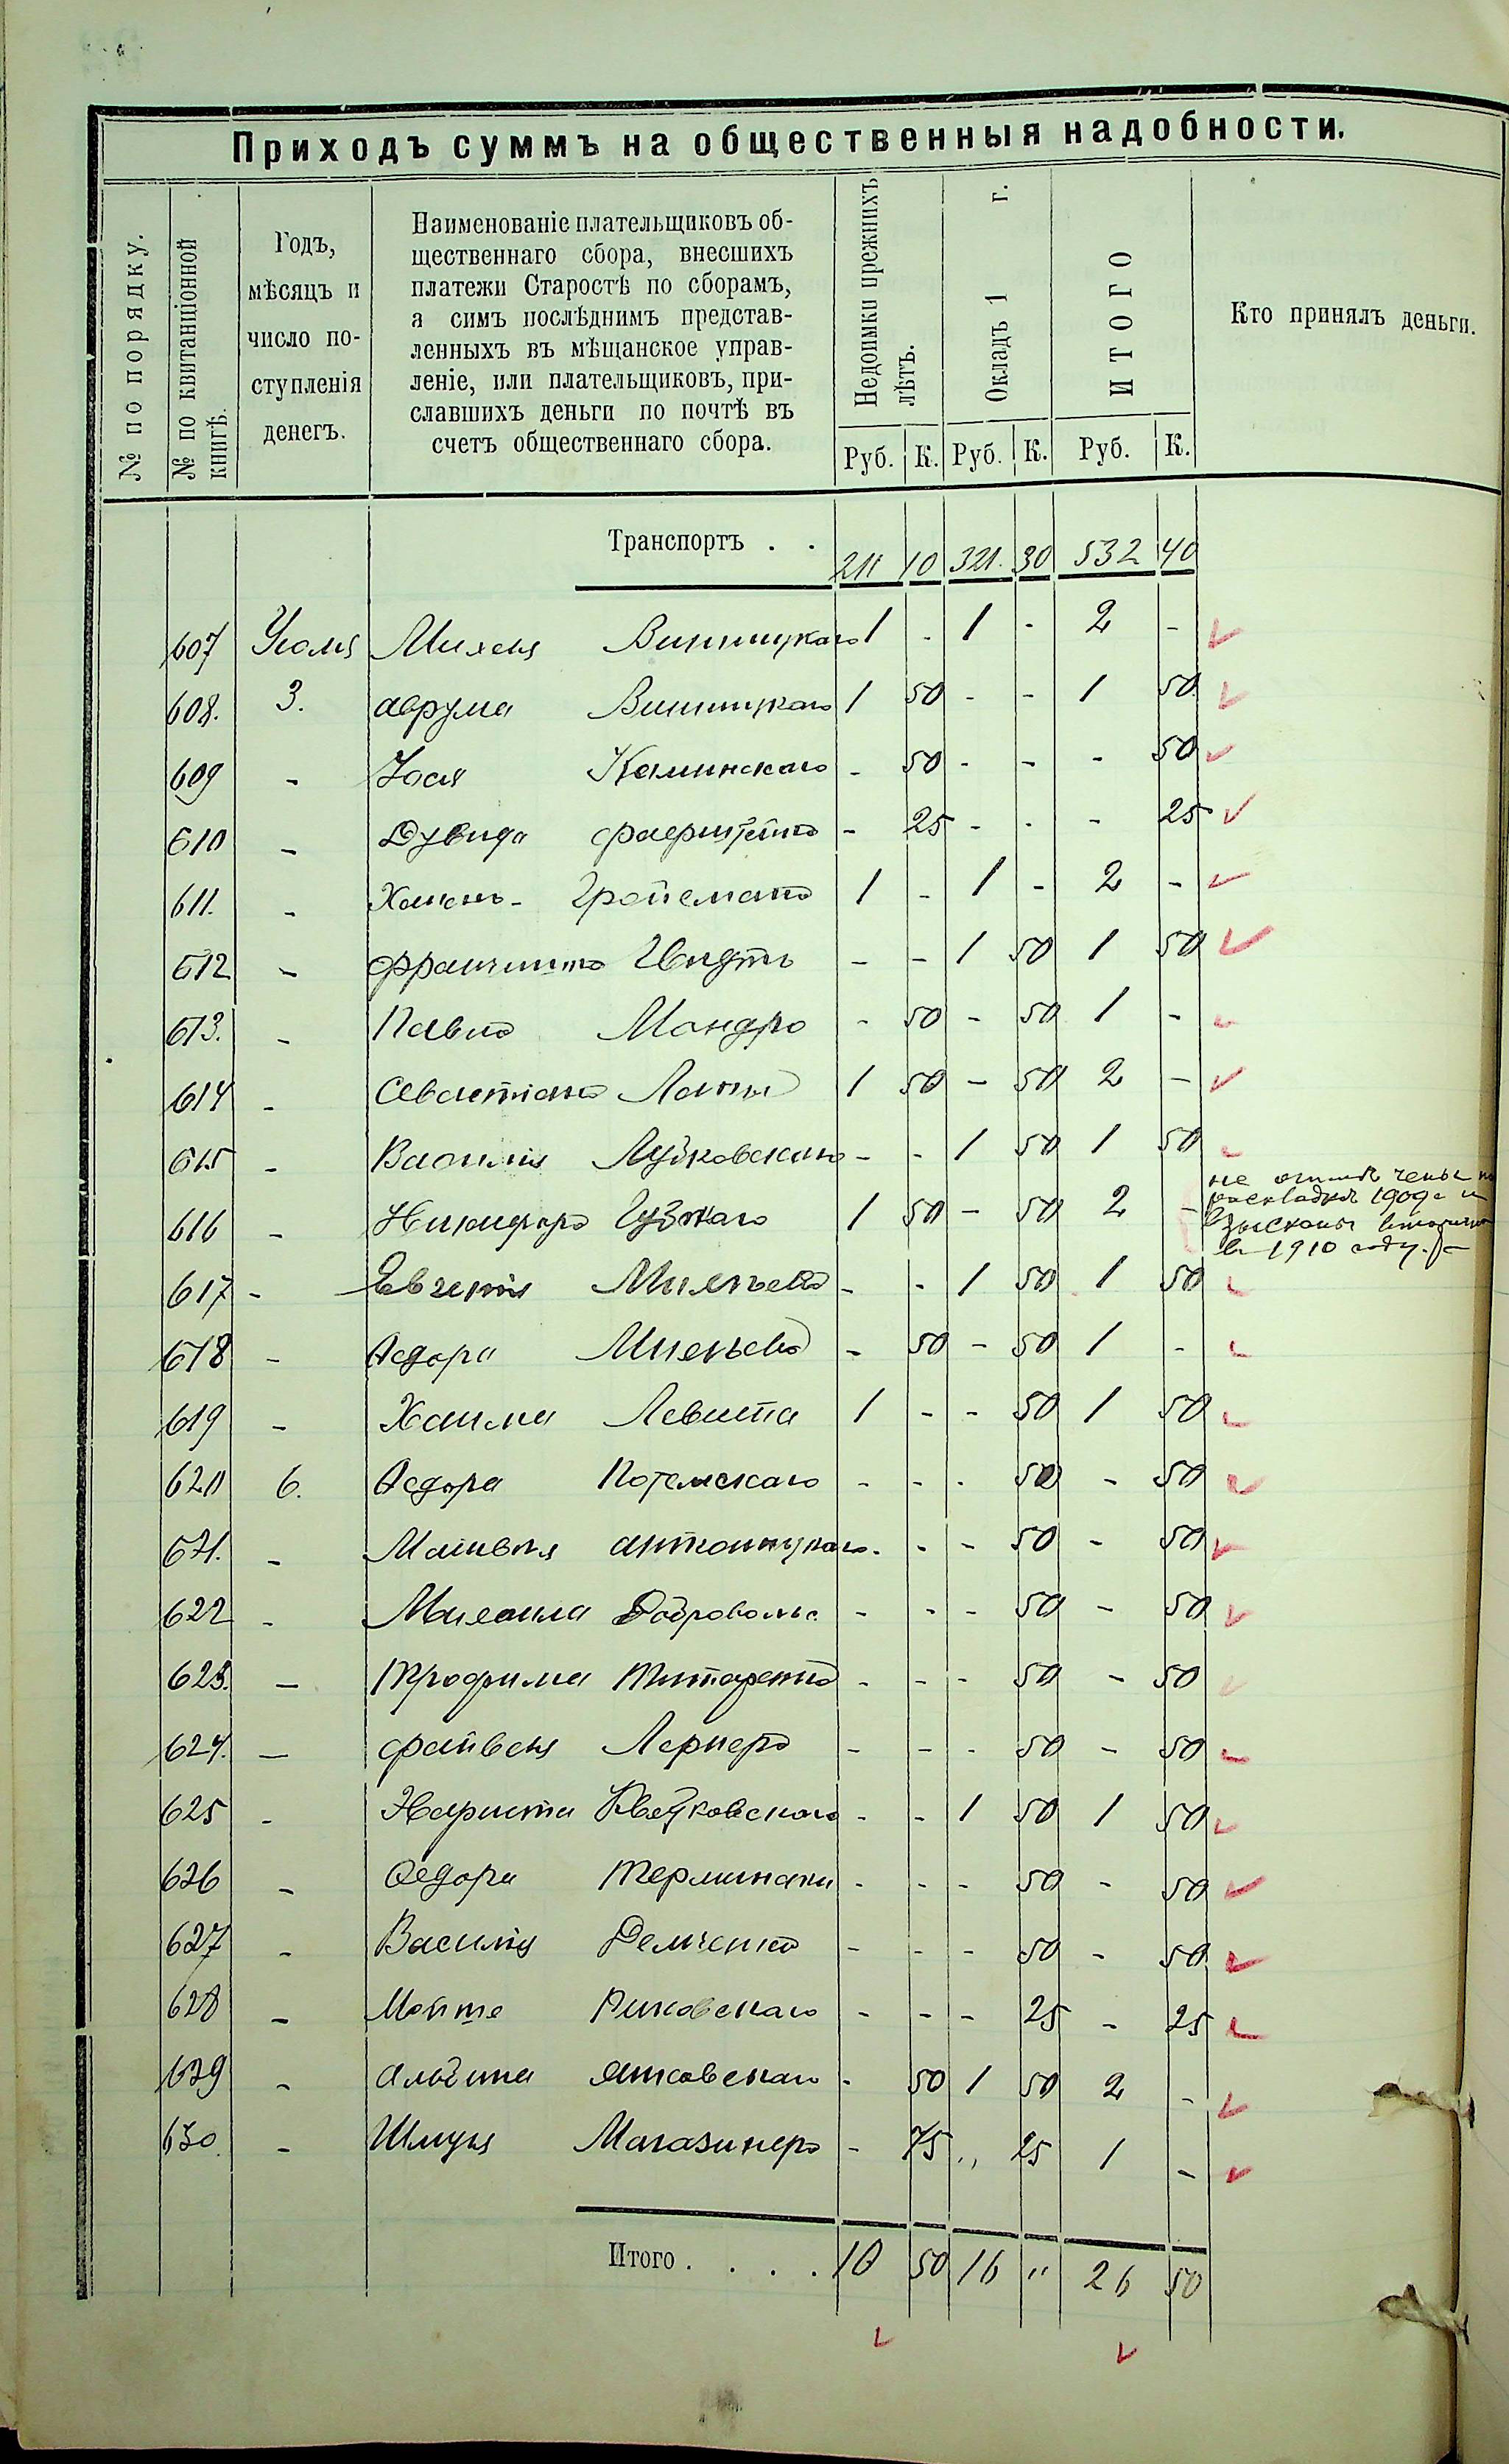 Приходъ суммъ на общественныя надобности.
№ по порядку.
№ по квитанціонной книгѣ.
Годъ,
мѣсяцъ и
число по-
ступленія
денегъ.
Наименованіе плательщиковъ об-
щественнаго сбора, внесшихъ
платежи Старостѣ по сборамъ,
а симъ послѣднимъ представ-
ленныхъ въ мѣщанское управ-
леніе, или плательщиковъ, при-
славшихъ деньги по почтѣ въ
счетъ общественнаго сбора.
Недоимки прежнихъ лѣтъ.
Окладъ 1 г.
ИТОГО
Кто принялъ деньги.
Руб. К. Руб. К. Руб. К.
Транспортъ . . 211 10 321. 30 532 40
607 Іюля Михеля Винницкаго 1 - 1 - 2 -
608. 3. Аврума Винницкаго 1 50 - - 1 50
609 - Іося Каминскаго - 50 - - - 50
610 - Дувида - 25 - - - 25
611. - Ройсмана 1 - 1 - 2 -
612 - - - 1 50 1 50
613. - Павла Мандро - 50 - 50 1 -
614 - Севастіана 1 50 - 50 2 -
615 - Василія - - 1 50 1 50
616 - Никифора 1 50 - 50 2 -
не
раскладкѣ 1909 и
взысканы вторично
в 1910 году.
617 - Евгенія - - 1 50 1 50
618 - Ѳедора - 50 - 50 1 -
619 - Хаима Левита 1 - - 50 1 50
620 6. Ѳедора - - - 50 - 50
621. - Матвѣя - - - 50 - 50
622 - Михаила Добровольс. - - - 50 - 50
623. - Трофима Титаренко - - - 50 - 50
624. - Файвеля Лернеръ - - - 50 - 50
625 - Квятковскаго - - 1 50 1 50
626 - Ѳедора - - - 50 - 50
627 - Василія Демченко - - - 50 - 50
628 - - - - 25 - 25
629 - Янковскаго - 50 1 50 2 -
630 - Шмуля Магазинеръ - 75 „ 25 1 -
Итого . . . . 10 50 16 " 26 50